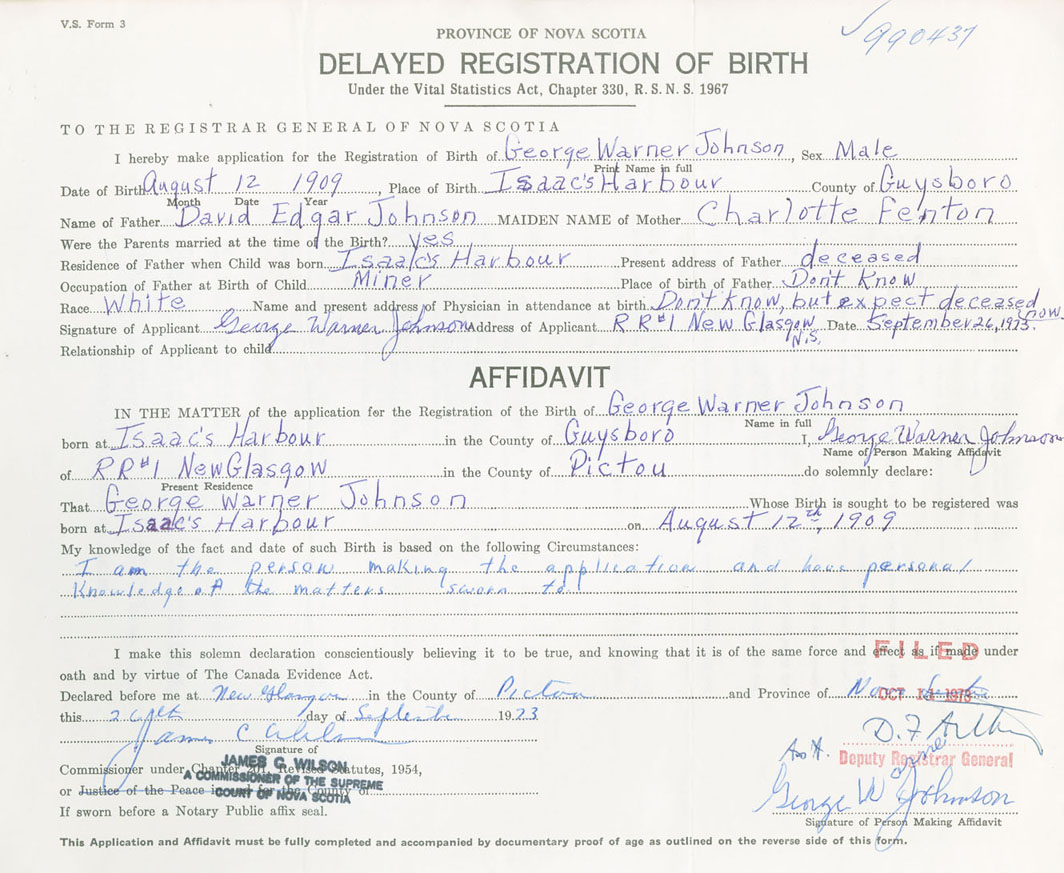 V.S. Form 3
990437
PROVINCE OF NOVA SCOTIA
DELAYED REGISTRATION OF BIRTH
Under the Vital Statistics Act, Chapter 330, R.S.N.S. 1967
TO THE REGISTRAR GENERAL OF NOVA SCOTIA
I hereby make application for the Registration of Birth of George Warner Johnson, Sex Male
Print Name in full
Date of Birth August 12 1909, Place of Birth Isaac's Harbour County of Guysboro
Month Date Year
Name of Father David Edgar Johnson MAIDEN NAME of Mother Charlotte Fenton
Were the Parents married at the time of the Birth? yes
Residence of Father when Child was born Isaac's Harbour Present address of Father deceased
Occupation of Father at Birth of Child Miner Place of birth of Father Don't Know
Race White Name and present address of Physician in attendance at birth Don't know, but expect deceased now
Signature of Applicant George Warner Johnson Address of Applicant RR#1 New Glasgow N.S. Date September 26, 1973.
Relationship of Applicant to child
AFFIDAVIT
IN THE MATTER of the application for the Registration of the Birth of George Warner Johnson
Name in full
born at Isaac's Harbour in the County of Guysboro I, George Warner Johnson
Name of Person Making Affidavit
of RR#1 New Glasgow in the County of Pictou do solemnly declare:
Present Residence
That George Warner Johnson Whose Birth is sought to be registered was
born at Isaac's Harbour on August 12th, 1909
My knowledge of the fact and date of such Birth is based on the following Circumstances:
I am the person making the application and have personal
Knowledge of the matters sworn to
I make this solemn declaration conscientiously believing it to be true, and knowing that it is of the same force and effect as if made under
FILED
oath and by virtue of The Canada Evidence Act.
Declared before me at New Glasgow in the County of Pictou and Province of Nova Scotia
OCT 11 1973
this 26th day of September 1973
James C Wilson
D. F.
Signature of
Ass't. Deputy Registrar General
JAMES C. WILSON
A COMMISSIONER OF THE SUPREME
COURT OF NOVA SCOTIA
Commissioner under Chapter 201, Revised Statutes, 1954,
or Justice of the Peace in and for the County of
George W Johnson
If sworn before a Notary Public affix seal.
Signature of Person Making Affidavit
This Application and Affidavit must be fully completed and accompanied by documentary proof of age as outlined on the reverse side of this form.